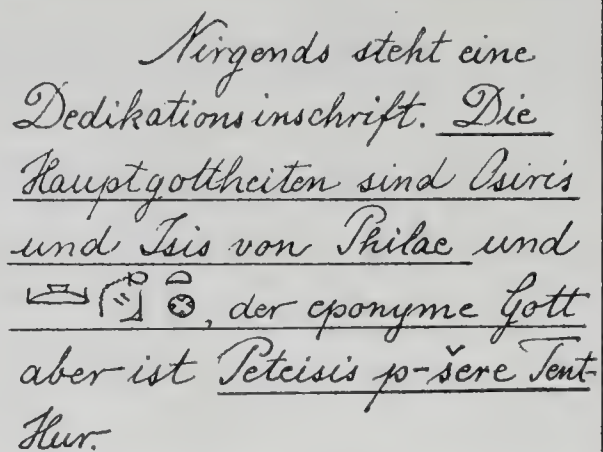 Nirgends steht eine
Dedikationsinschrift. Die
Hauptgottheiten sind Osiris
und Isis von Philae und
, der eponyme Gott
aber ist Peteisis p-šere Tent-
Hur.